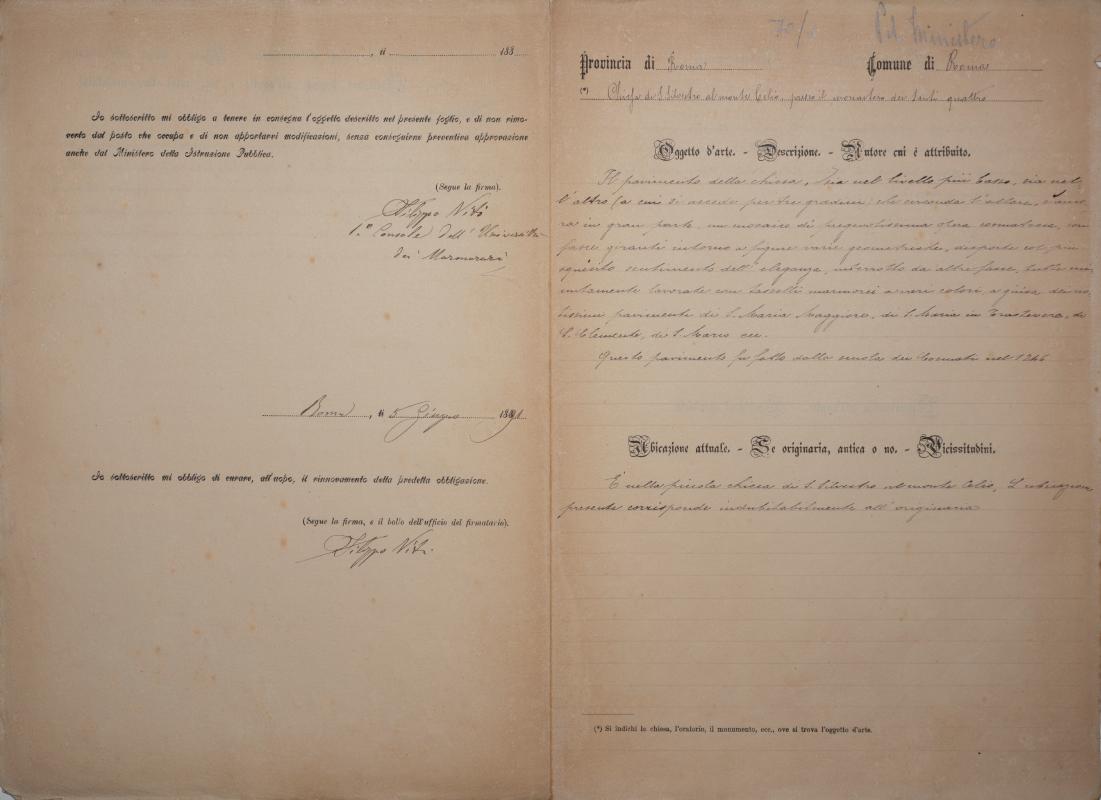 , li 188
Io sottoscritto mi obbligo a tenere in consegna l'oggetto descritto nel presente foglio, e di non rimo-
verlo dal posto che occupa e di non apportarvi modificazioni, senza conseguirne preventiva approvazione
anche dal Ministero della Istruzione Pubblica.
(Segue la firma).
Filippo Niti
1.º Console dell' Università
dei Marmorari
Roma, li 5 Giugno 1891
Io sottoscritto mi obbligo di curare, all'uopo, il rinnovamento della predetta obbligazione.
(Segue la firma, e il bollo dell'ufficio del firmatario).
Filippo Niti
Pel Ministero
Provincia di Roma Comune di Roma
(*) Chiesa di S. Silvestro al monte Celio, presso il monastero dei Santi quattro
Oggetto d'arte. - Descrizione. - Autore cui è attribuito.
Il pavimento della chiesa, sia nel livello più basso, sia nel-
l'altro (a cui si accede per tre gradini) che circonda l'altare, è anco-
ra in gran parte, un mosaico di pregevolissima opera cosmatesca, con
fasce giranti intorno a figure varie geometriche, disposte col più
squisito sentimento dell'eleganza, interrotto da altre fasce, tutte mi-
nutamente lavorate con tasselli marmorei a vari colori, a guisa dei no-
tissimi pavimenti di S. Maria Maggiore, di S. Maria in Trastevere, di
S. Clemente, di S. Marco ecc.
Questo pavimento fu fatto dalla scuola dei Cosmati nel 1246
Ubicazione attuale. - Se originaria, antica o no. - Vicissitudini.
È nella piccola chiesa di S. Silvestro al monte Celio. L'ubicazione
presente corrisponde indubitabilmente all'originaria
(*) Si indichi la chiesa, l'oratorio, il monumento, ecc., ove si trova l'oggetto d'arte.